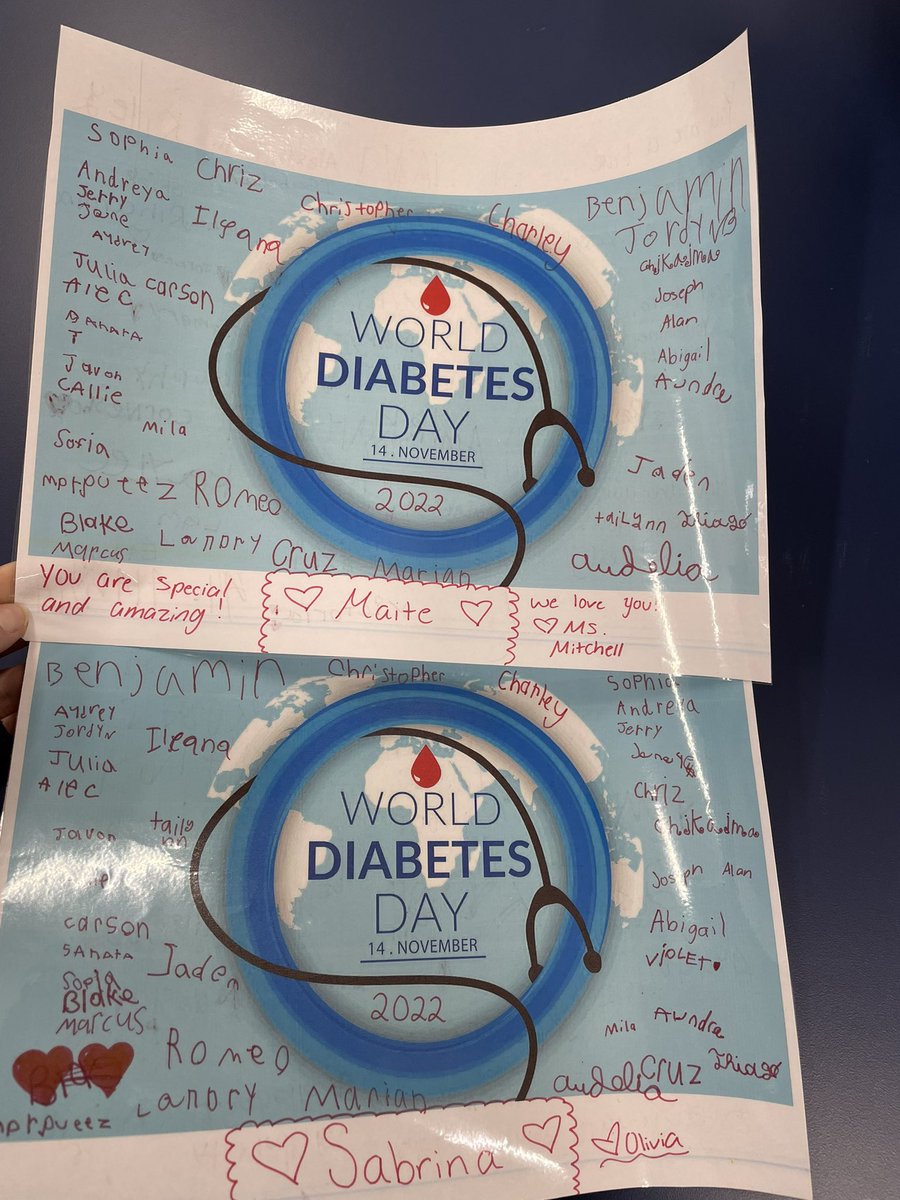 Sophia
Chriz
Andreya
Jerry
Jane
Ileana
Christopher
Charley
Benjamin
Jordyn
Audrey
Julia
carson
Alec
SAMATA
T
Javon
CAllie
Mila
Sofia
mprpueez
ROmeo
Blake
Landry
Marcus
Cruz
Marian
chjkadma
Joseph
Alan
Abigail
Aundre
Jaden
tailynn
Thiago
audelia
WORLD
DIABETES
DAY
14. NOVEMBER
2022
You are special
and amazing!
Maite
we love you!
Ms.
Mitchell
Benjamin
Christopher
Charley
Sophia
Audrey
Jordyn
Ileana
Julia
Alec
Andreya
Jerry
Chriz
chjkadma
Javon
taily
nn
Joseph
Alan
carson
SAMATA
Jaden
Abigail
VIOLET
Sofia
Blake
Marcus
Mila
Aundre
Romeo
mprpueez
Landry
Marian
audelia
Cruz
Thiago
WORLD
DIABETES
DAY
14. NOVEMBER
2022
Sabrina
Olivia